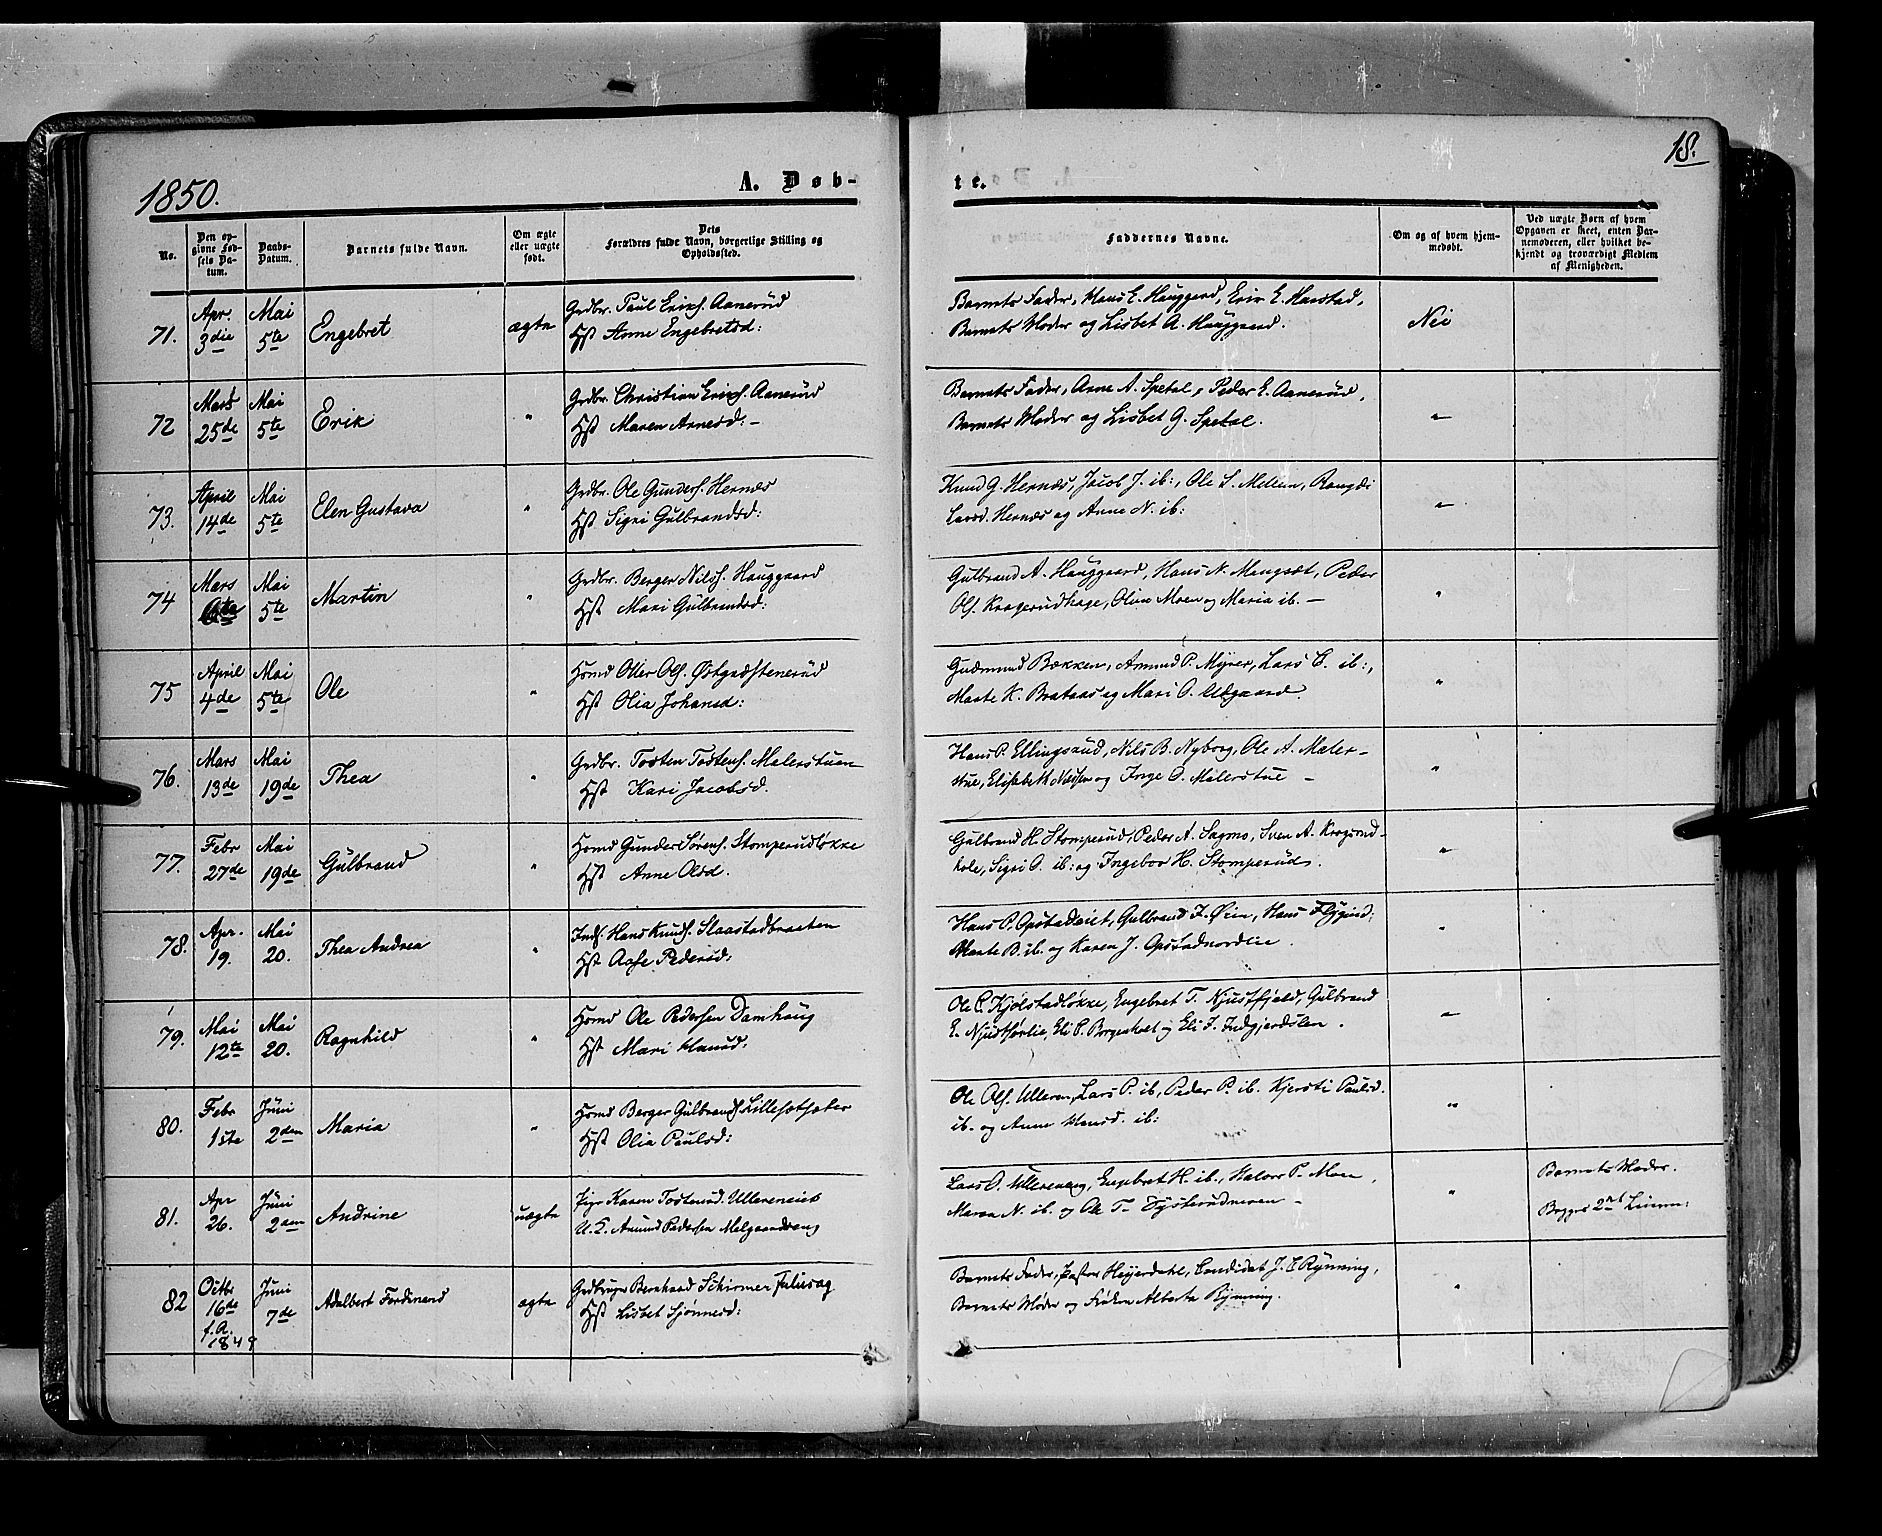 1850.
A. Døb-
te.
18.
No.
Den op-
givne Fød-
sels Da-
tum.
Daabs-
Datum.
Barnets fulde Navn.
Om ægte
eller uægte
født.
Dets
Forældres fulde Navn, borgerlige Stilling og
Opholdssted.
Faddernes Navne.
Om og af hvem hjem-
medøbt.
Ved uægte Børn af hvem
Opgaven er skeet, enten Bar-
nemoderen, eller hvilket be-
kjendt og troværdigt Medlem
af Menigheden.
71.
Apr.
3die
Mai
5te
Engebret
ægte
Grdbr. Paul Erichs. Aanerüd
Hst Anne Engebretsd:
Barnets Fader, Hans E. Hauggard, Erik E. Harstad,
Barnets Moder og Lisbet A. Hauggaard.
Nei
72
Mars
25de
Mai
5te
Erik
"
Grdbr. Christian Erichs. Aanerüd
Hst Maren Arnesd: –
Barnets Fader, Arne A. Spetal, Peder E. Aanerüd,
Barnets Moder og Lisbet G. Spetal.
"
73.
April
14de
Mai
5te
Elen Gustava
"
Grdbr. Ole Gunders. Hernæs
Hst Sigri Gülbrandsd:
Knud G. Hernæs, Jacob J. ib:, Ole S. Melum, Rangdi
Larsd. Hernæs og Anne N. ib:
"
74
Mars
6te
Mai
5te
Martin
"
Grdbr. Berger Nilss. Hauggaard
Hst Mari Gülbrandsd:
Gulbrand A. Hauggaard, Hans N. Mangset, Peder
Ols. Kragerudhage, Oline Moen og Maria ib. –
"
75
April
4de
Mai
5te
Ole
"
Hsmd Ols. Østgaestenerüd
Hst Olia Johansd:
Gudmund Bækken, Amund P. Myrer, Lars C. ib:,
Marte K. Brataas og Mari O.
"
76.
Mars
13de
Mai
19de
Thea
"
Grdbr. Tosten Tostens. Malerstuen
Hst Kari Jacobsd.
Hans P. Ellingsrud, Nils B. Nyborg, Ole A. Maler-
stue, Elisabeth og Inge O. Malerstue –
"
77.
Febr
27de
Mai
19de
Gülbrand
"
Hsmd Gunder Sørens. Stomperudløkke
Hst Anne Olsd.
Gülbrand H. Stomperud, Peder A. Sagmo, Sven A. Kragerud-
hole, Sigri O. ib: og Ingebor H. Stomperud.
"
78.
Apr.
19.
Mai
20.
Thea Andrea
"
Inds. Hans Knuds. Slaastadbraaten
Hst Aase Pedersd:
Hans P. Opstadeiet, Gulbrand J. Øien, Hans
Marte B. ib. og Karen J. Opstadnordlie.
"
79.
Mai
12te
Mai
20.
Ragnhild
"
Hsmd Ole Pedersen Damhaug
Hst Mari Hansd:
Ole P. Kjølstadløkke, Engebret T. Njustfjeld, Gülbrand
E. Eli P. Borgenholt og Eli J. Indgjerdslen.
"
80.
Febr
1ste
Juni
2den
Maria
"
Hsmd Berger Gülbrands. Lillesætsæter
Hst Olia Paulsd:
Ole Ols. Ulleren, Lars P. ib, Peder P. ib. Kjersti Paulsd.
ib. og Anne Hansd. ib:
"
81.
Apr
26.
Juni
2den
Andrine
uægte
Pige Karen Tostensd. Ullereneiet
U. K. Amund Pedersen Melgaardseng
Lars O. Ullereneng, Engebret H. ib., Halvor P. Moen,
Maren N. ib. og Ole T. –
"
Barnets Moder.
Begges 2net Leierm:
82
Octbr
16de
f. A.
1849
Juni
7de
Adalbert Ferdinand
ægte
Grdbruger Bernhard Schirmer Juliussag
Hst Lisbet Sjønnesd:
Barnets Fader, Pastor Heyerdahl, Candidat J. C Rynning,
Barnets Moder og Frøken Alberta Rynning.
"